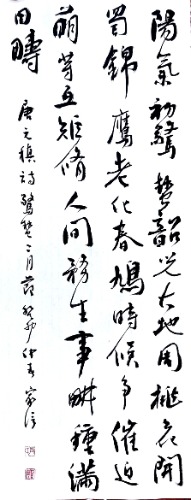 陽氣初驚蟄韶光大地周桃花開
蜀錦鷹老化春鳩時候爭催迫
萌芽互矩脩人間務生事畊種滿
田疇
唐元稹詩驚蟄二月節癸卯仲春家信